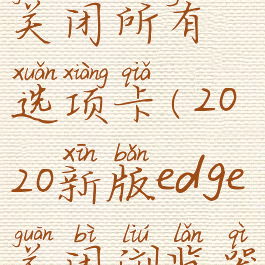 关闭所有
xuǎn xiàng qiǎ
选项卡(20
xīn bǎn
20新版edge
guān bì liú lǎn qì
关闭浏览器